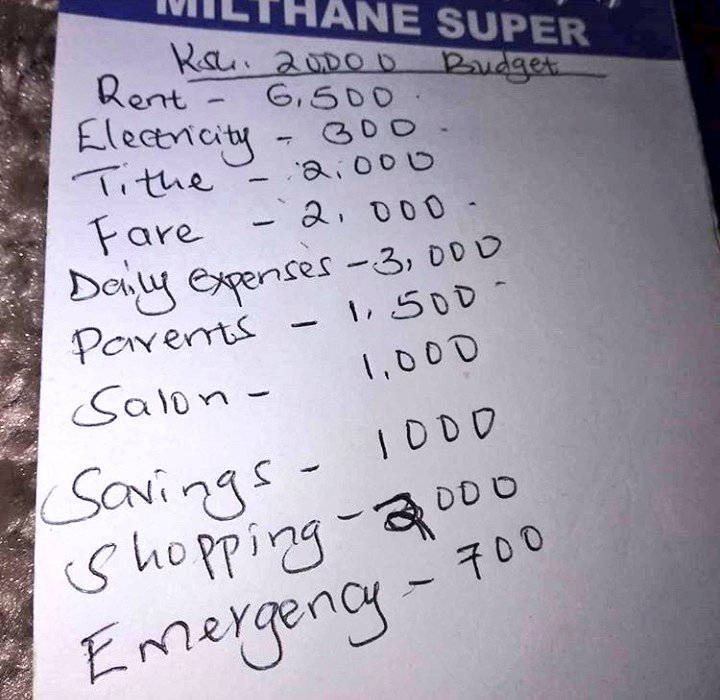 MILTHANE SUPER
Ksh. 20,000 Budget
Rent - 6,500
Electricity - 300
Tithe - 2,000
Fare - 2,000
Daily expenses - 3,000
Parents - 1,500
Salon - 1,000
Savings - 1000
Shopping - 2000
Emergency - 700